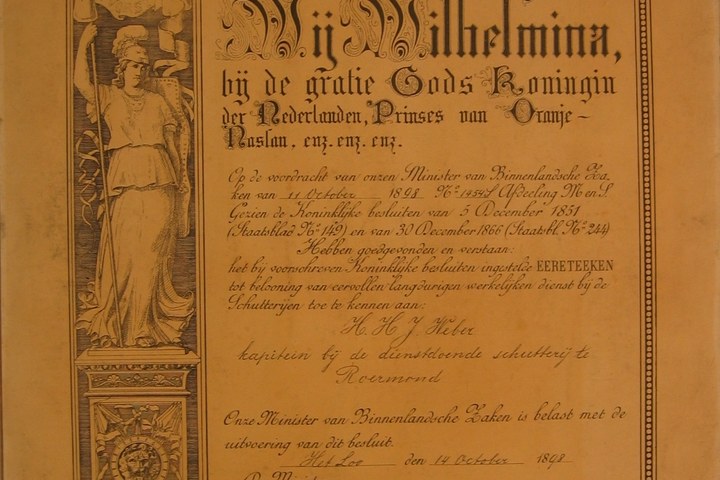 Wij Wilhelmina,
bij de gratie Gods Koningin
der Nederlanden, Prinses van Oranje-
Nassau, enz. enz. enz.
Op de voordracht van onzen Minister van Binnenlandsche Za,
ken van 11 October 1898 No 1454S Afdeeling M en S.
Gezien de Koninklijke besluiten van 5 December 1851
(Staatsblad No 149) en van 30 December 1866 (Staatsbl. No 244)
Hebben goedgevonden en verstaan:
het bij voorschreven Koninklijke besluiten ingestelde EERETEEKEN
tot belooning van eervollen langdurigen werkelijken dienst bij de
Schutterijen toe te kennen aan:
H. H. J. Heber
kapitein bij de dienstdoende schutterij te
Roermond
Onze Minister van Binnenlandsche Zaken is belast met de
uitvoering van dit besluit.
Het Loo den 14 October 1898
De Minister